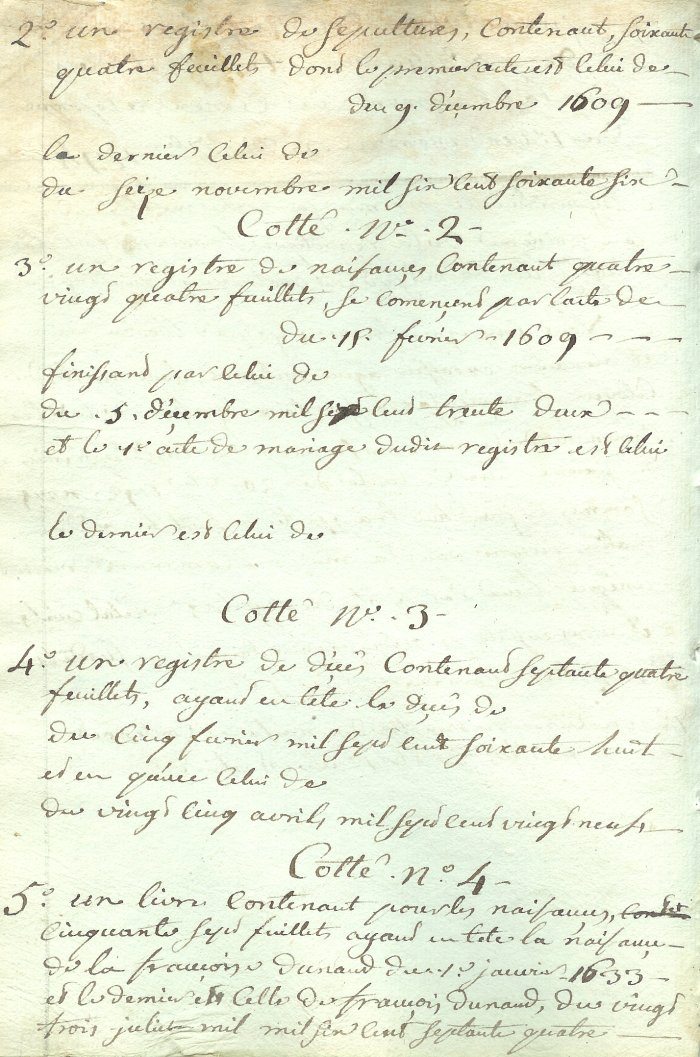 2.º un registre de sepultures, contenant, soixante
quatre feuillets dond le premier acte est celui de
du 9. decembre 1609
le dernier celui de
du seize novembre mil six cent soixante six
Cotté Nº 2
3.º un registre de naissances contenant quatre
vingd quatre feuillets, se començend par l'acte de
du 15. fevrier 1609
finissand par celui de
du 5. décembre mil six cend trente deux
et le 1.er acte de mariage dudit registre est celui
le dernier est celui de
Cotté Nº. 3
4.º un registre de décês contenand septante quatre
feuillets, ayand en tête le décês de
du cinq fevrier mil sepd cent soixante huit
et en celui de
du vingd cinq avril, mil sepd cend vingd neuf
Cotté nº 4
5.º un livre contenant pour les naissances,
cinquante sepd fuillets ayand en tete la naissance
de la françoise Dunand du 1.er janvier 1633
et le dernier est celle de françois Dunand, du vingd
trois juliet mil mil six cend septante quatre